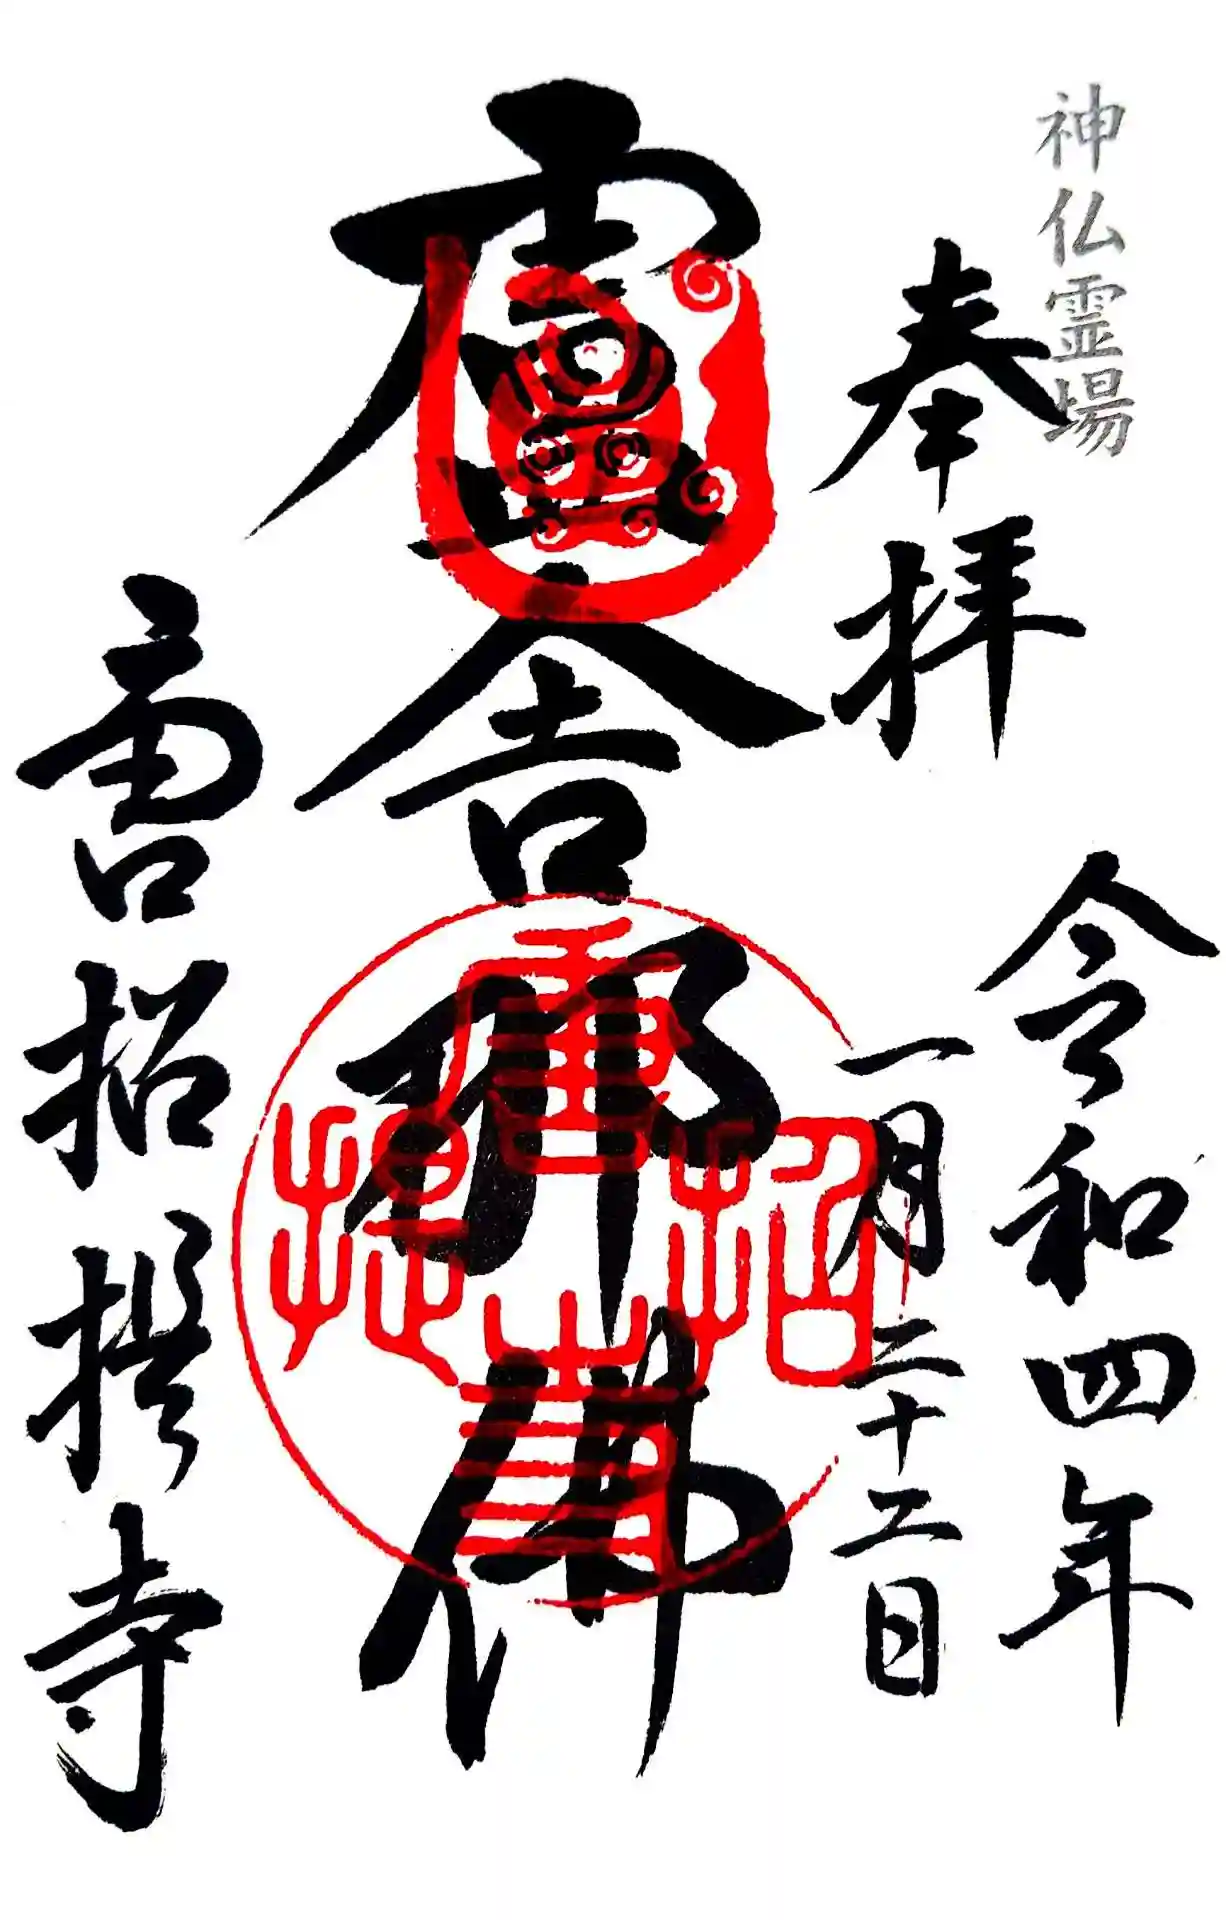 神仏霊場
奉拝
令和四年
一月二十二日
盧舎那佛
唐招提寺